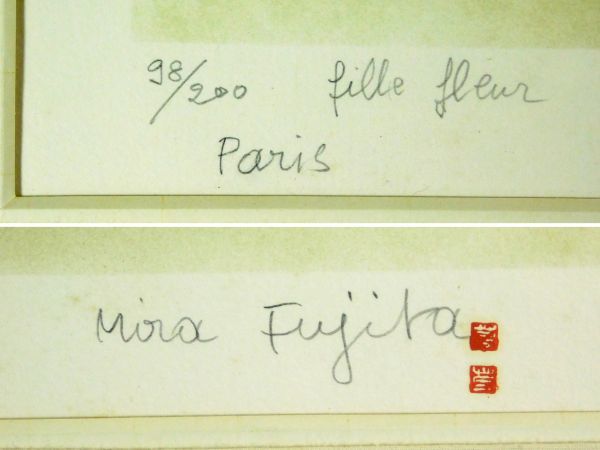 98/200 fille fleur
Paris
Mira Fujita